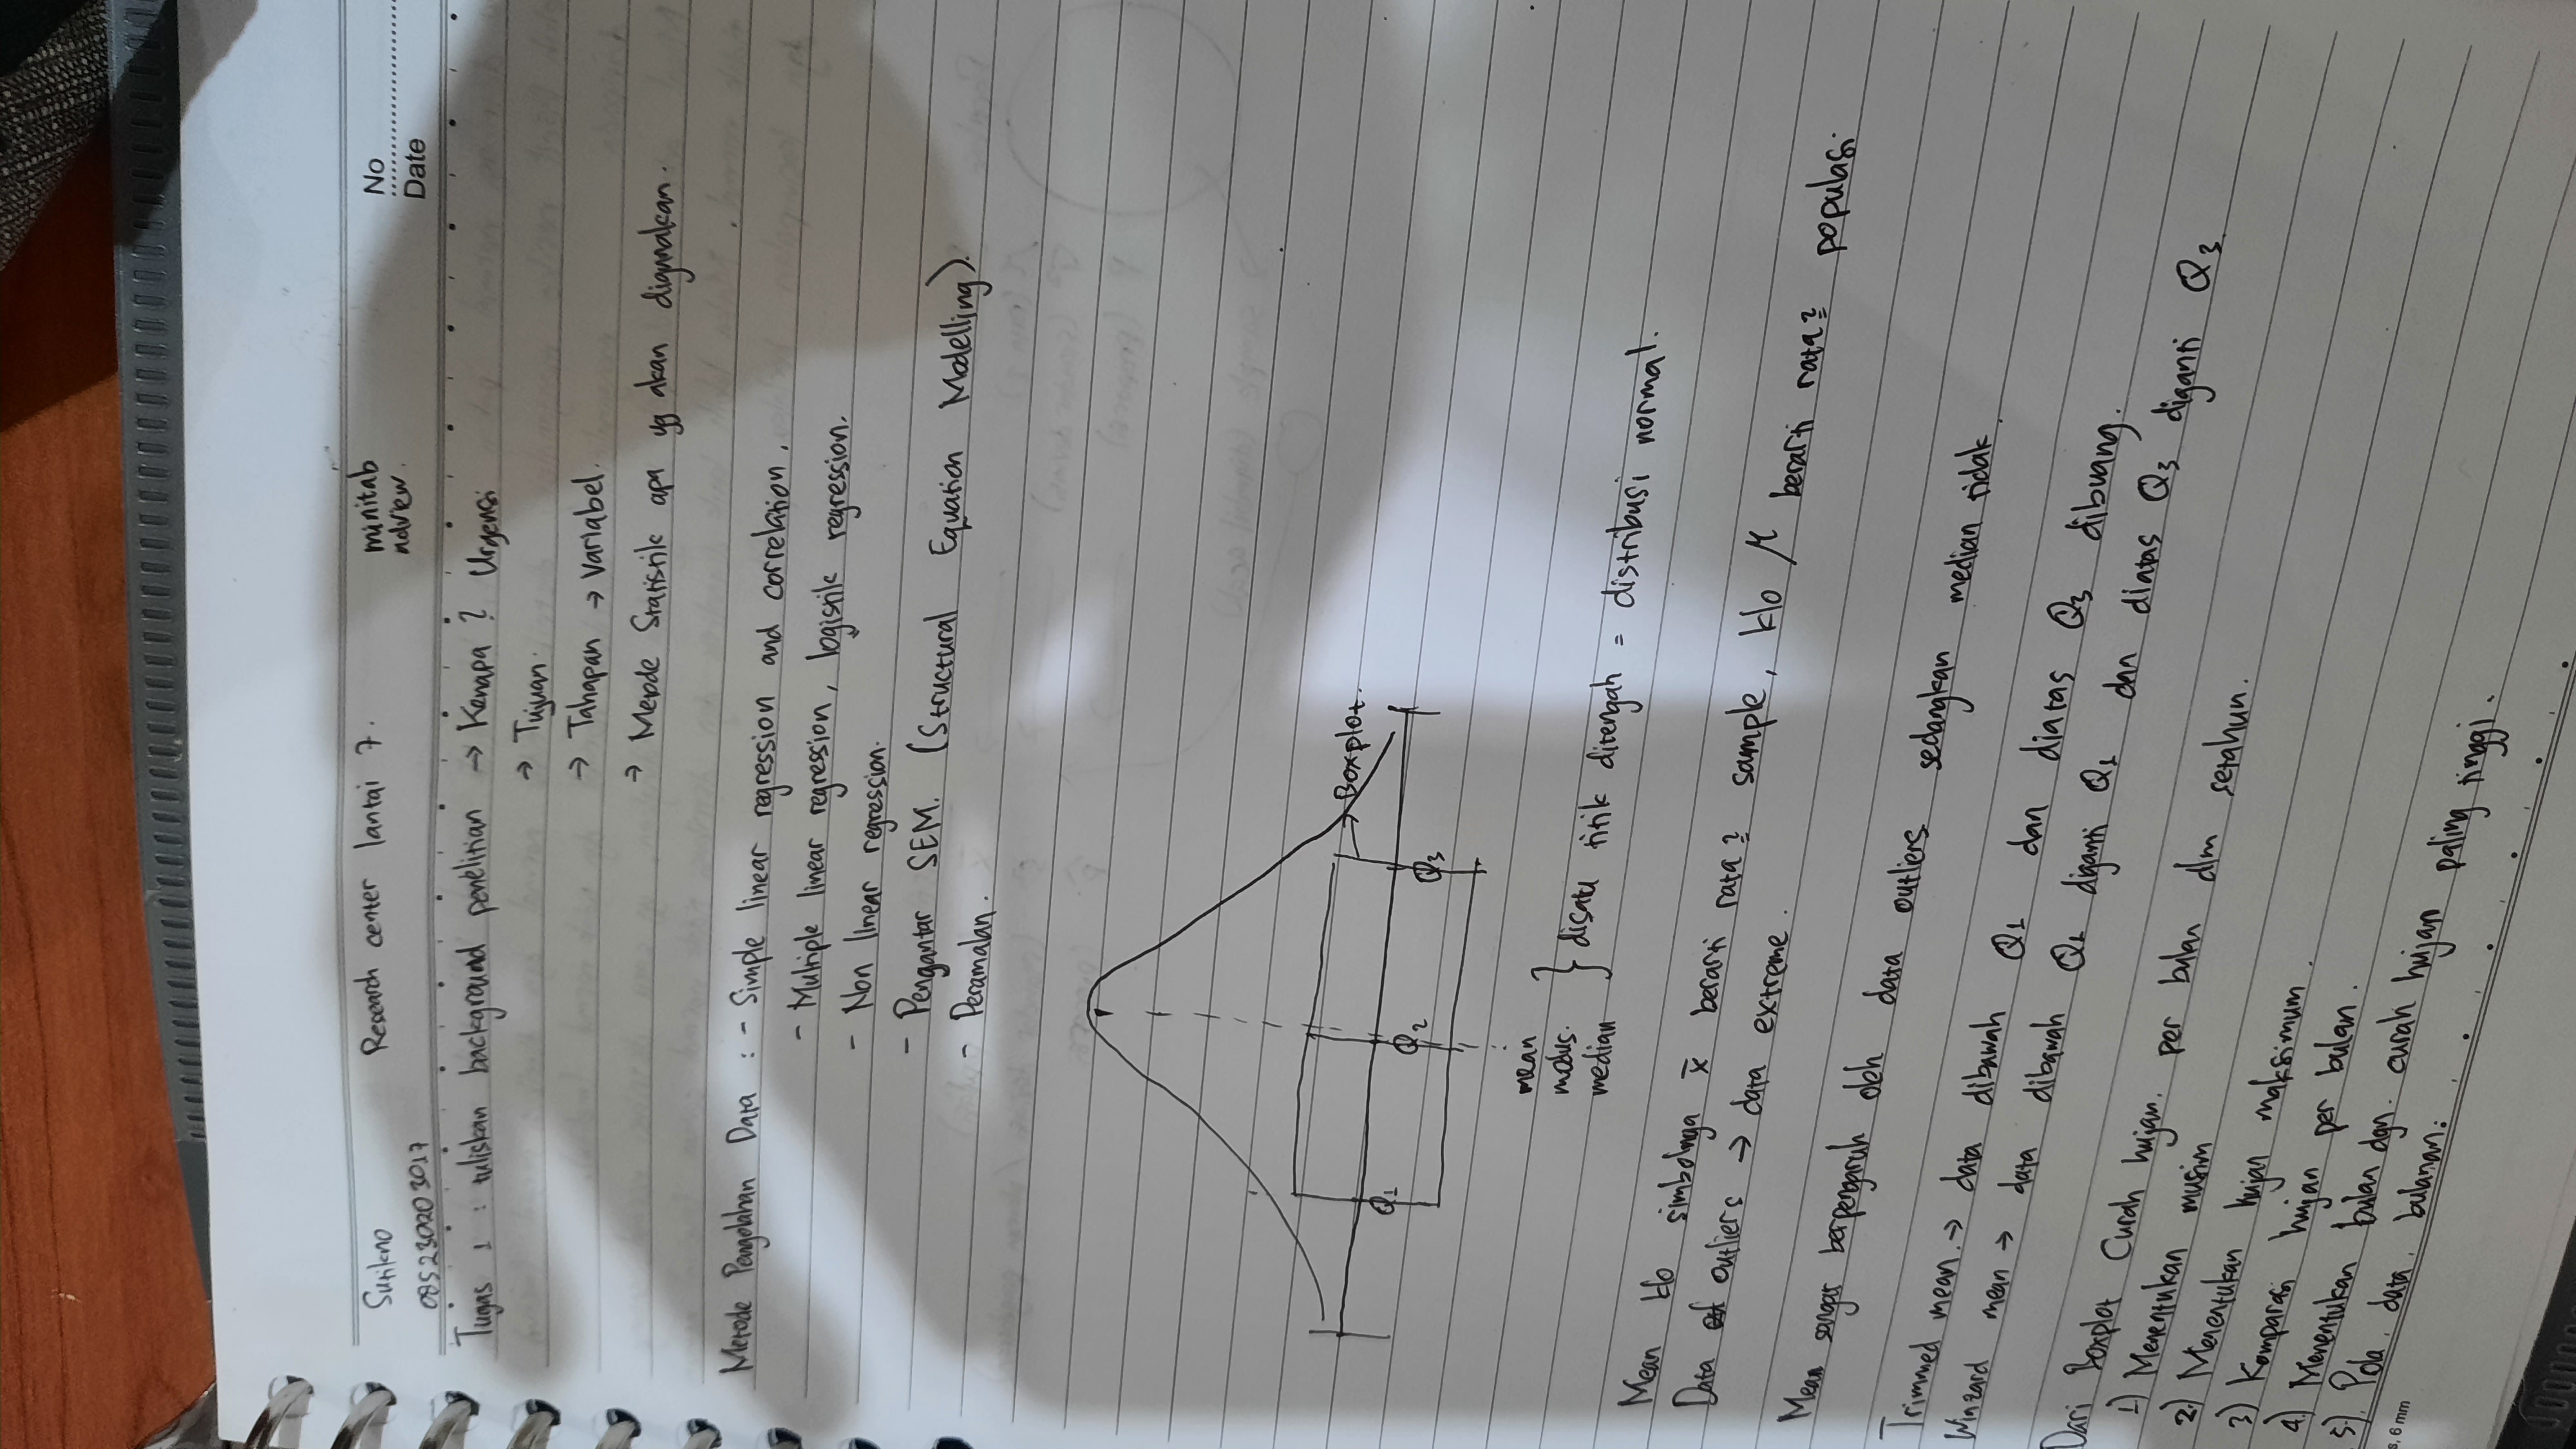 Sutikno
Research center lantai 7.
minitab
No
085230203017
adview.
Date
Tugas 1 : tuliskan background penelitian → Kenapa ? Urgensi
→ Tujuan.
→ Tahapan → Variabel.
→ Metode Statistik apa yg akan digunakan.
Metode Pengolahan Data : - Simple linear regression and correlation.
- Multiple linear regression, logistik regression.
- Non linear regression.
- Pengantar SEM. (Structural Equation Modelling).
- Peramalan.
Boxplot.
Q1 Q2 Q3
mean
modus.
median
} disatu titik ditengah = distribusi normal.
Mean klo simbolnya x̄ berarti rata2 sample, klo μ berarti rata2 populasi
Data outliers → data extreme.
Mean sangat berpengaruh oleh data outliers sedangkan median tidak.
Trimmed mean. → data dibawah Q1 dan diatas Q3 dibuang.
Winzard mean → data dibawah Q1 diganti Q1 dan diatas Q3 diganti Q3.
Dari Boxplot Curah hujan. per bulan dlm setahun.
1) Menentukan musim
2) Menentukan hujan maksimum.
3) Komparasi hujan per bulan.
4) Menentukan bulan dgn. curah hujan paling tinggi.
5). Pola. data. bulanan.
s, 6 mm